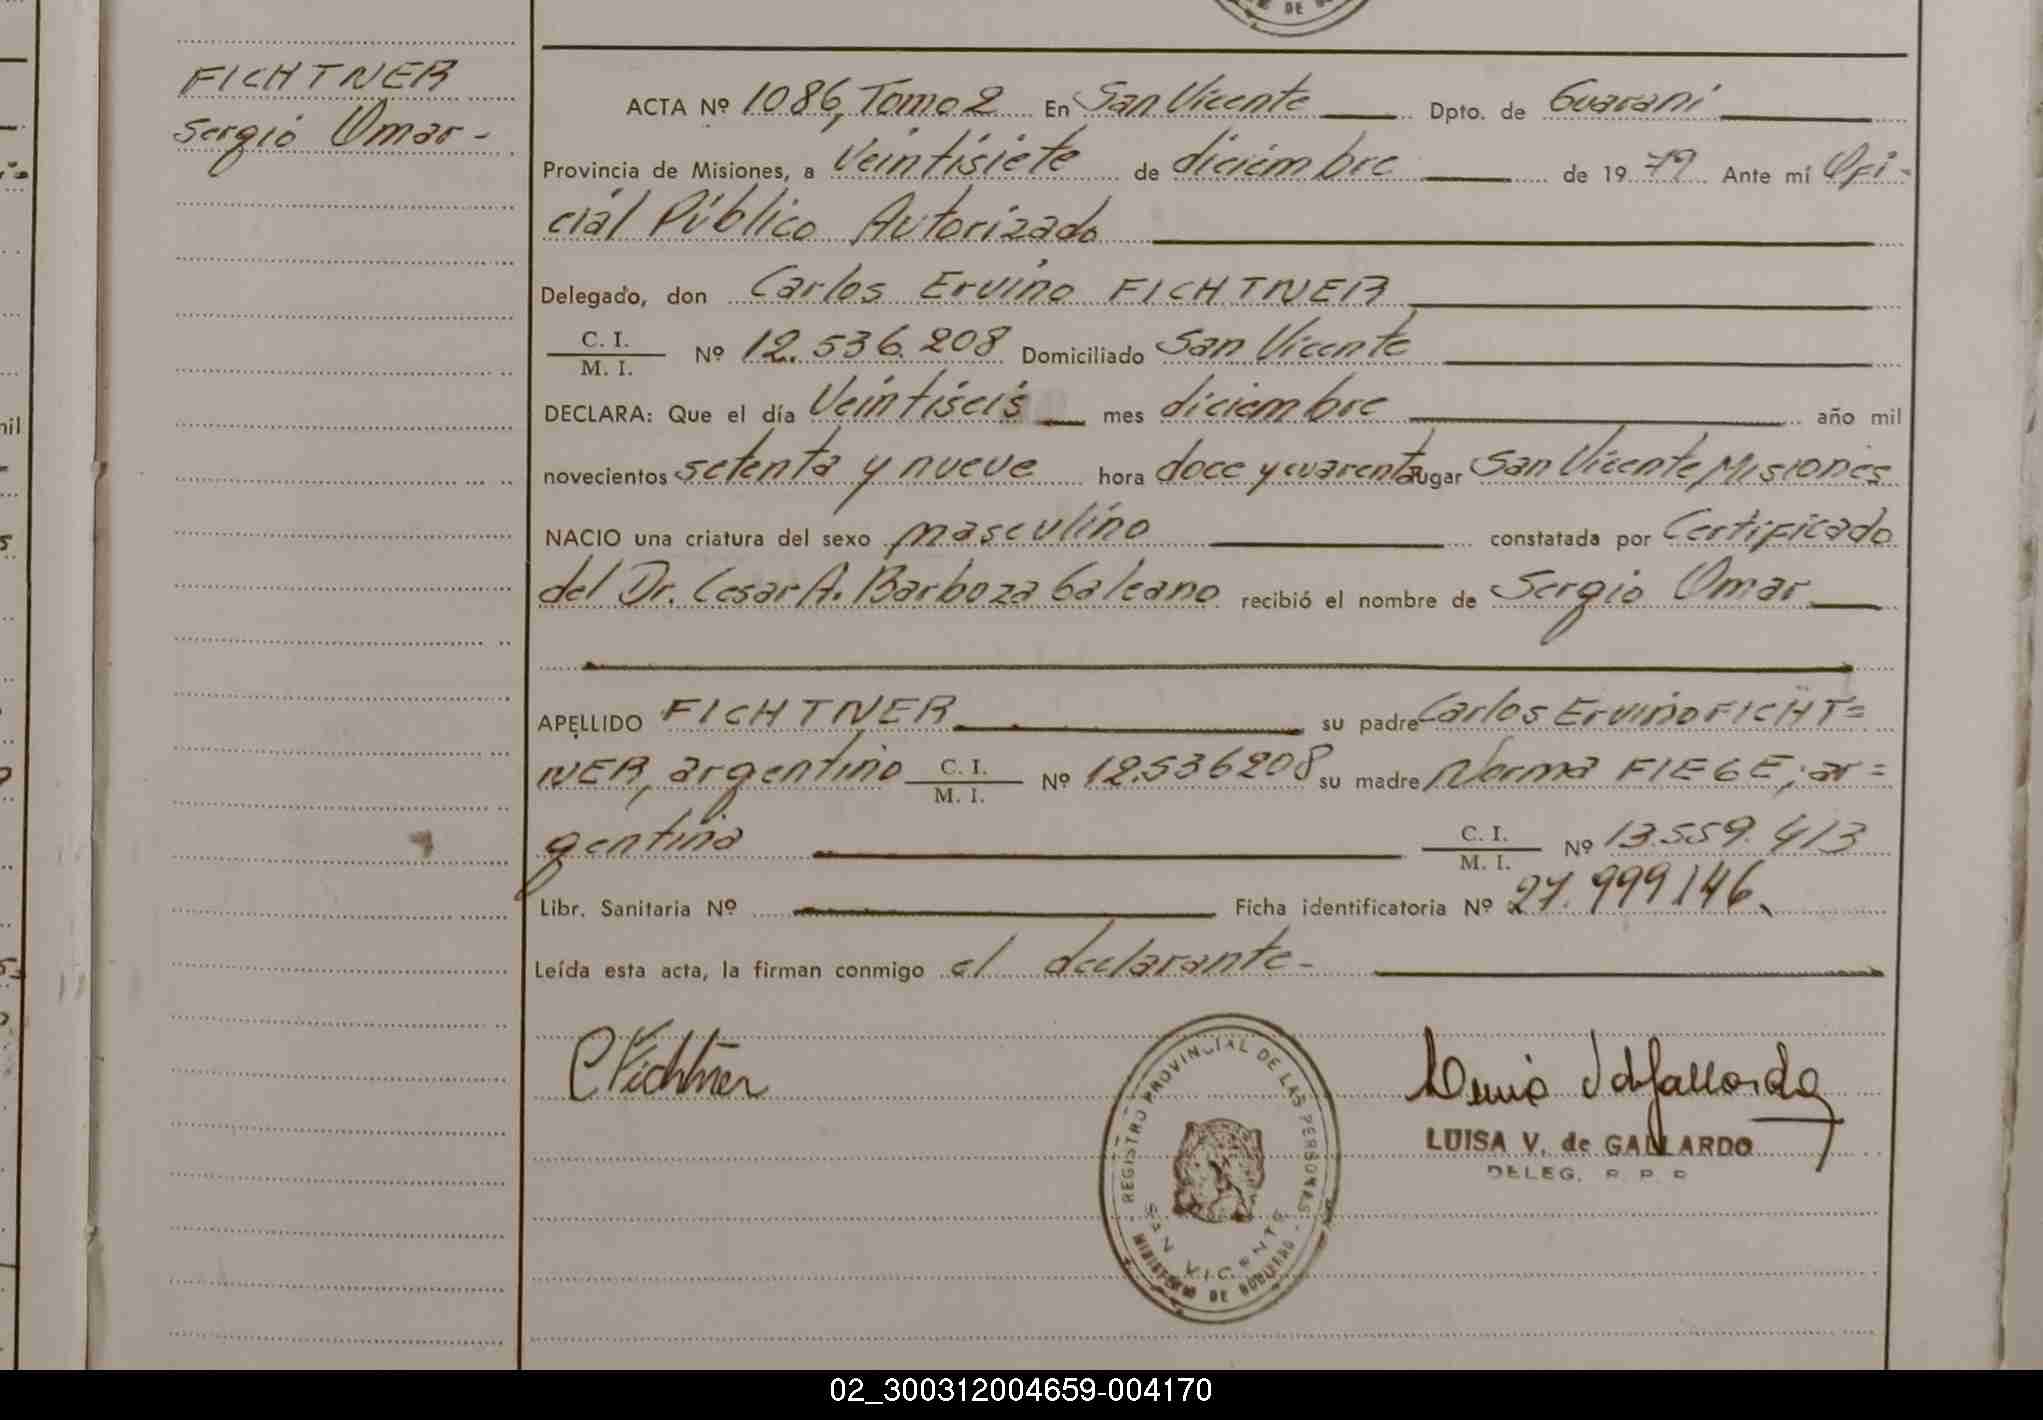 FICHTNER
Sergio Omar-
ACTA Nº 1086, Tomo 2 En San Vicente Dpto. de Guaraní
Provincia de Misiones, a Veintisiete de diciembre de 19 79 Ante mí Ofi-
cial Público Autorizado
Delegado, don Carlos Ervino FICHTNER
C. I.
M. I. Nº 12.536.208 Domiciliado San Vicente
DECLARA: Que el día Veintiseis mes diciembre año mil
novecientos setenta y nueve hora doce y cuarenta lugar San Vicente Misiones
NACIO una criatura del sexo masculino constatada por Certificado
del Dr. Cesar A. Barboza Galeano recibió el nombre de Sergio Omar
APELLIDO FICHTNER su padre Carlos Ervino FICHT=
NER, argentino C. I.
M. I. Nº 12.536208 su madre Norma FIEGE; ar=
gentina C. I.
M. I. Nº 13.559.413
Libr. Sanitaria Nº Ficha identificatoria Nº 27.999.146.
Leída esta acta, la firman conmigo el declarante-
C Fichtner
REGISTRO PROVINCIAL DE LAS PERSONAS
SAN VICENTE
MINISTERIO DE GOBIERNO
LUISA V. de GALLARDO
DELEG. R. P. P.
02_300312004659-004170